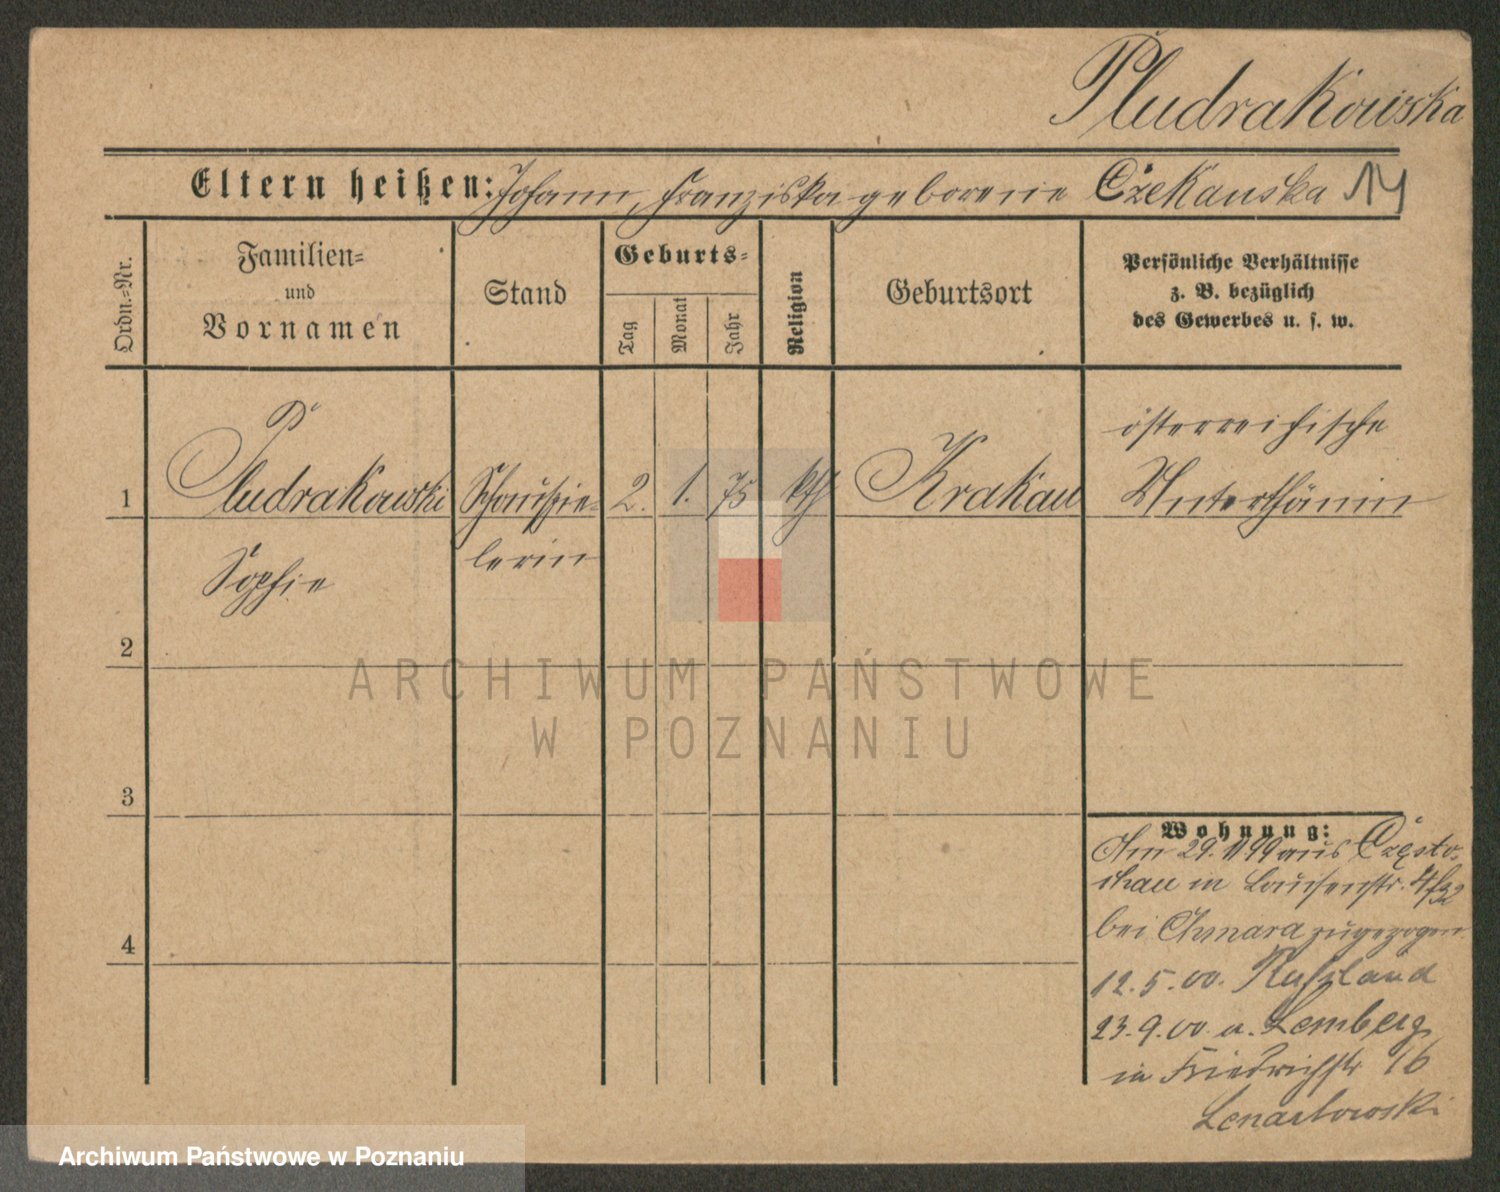 Pludrakowska
Eltern heißen: Johann, Franziska geborene Czekanska 14
Ordn.=Nr.
Familien=
und
Vornamen
Stand
Geburts=
Tag
Monat
Jahr
Religion
Geburtsort
Persönliche Verhältnisse
z. B. bezüglich
des Gewerbes u. s. w.
1
Pludrakowski
Sophie
Schauspie=
lerin
2. 1. 75 kth
Krakau
österreichische
Unterthänin
2
3
4
Wohnung:
Am 29. 11 99 aus Często-
chau in
bei Chmara zugezogen
12.5.00. Rußland
23.9.00. a. Lemberg
in Friedrichstr 16
Lenartowski
ARCHIWUM PAŃSTWOWE
W POZNANIU
Archiwum Państwowe w Poznaniu